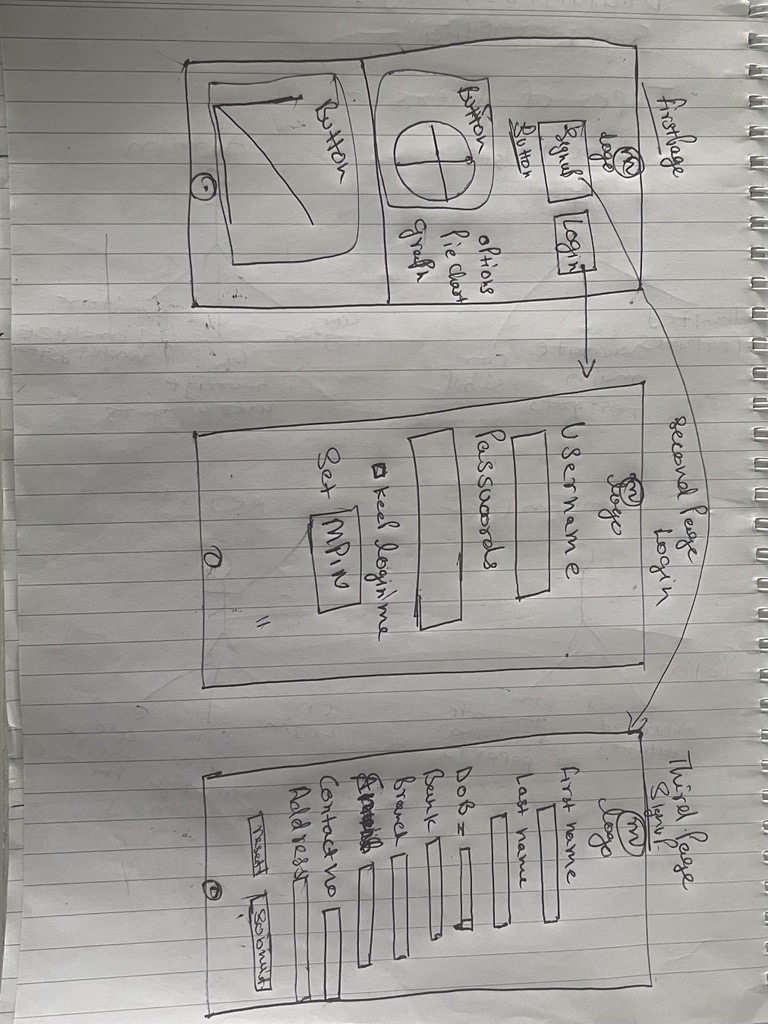 first page
m
logo
Signup
Login
Button
Button
options
Pie chart
graph
Button
second Page
Login
m
logo
Username
Passwords
keel login me
Set
MPIN
Third Page
Signup
m
logo
first name
Last name
DOB =
Bank
Branch
Contact no
Address
reset
Submit